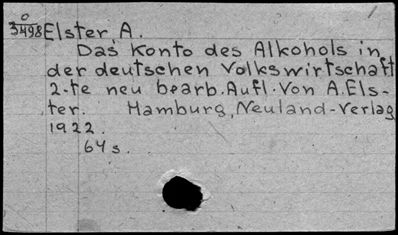 O
3498 Elster A.
Das Konto des Alkohols in
der deutschen Volkswirtschaft
2-te neu bearb. Aufl. Von A. Els-
ter. Hamburg, Neuland-Verlag
1922.
64 s.